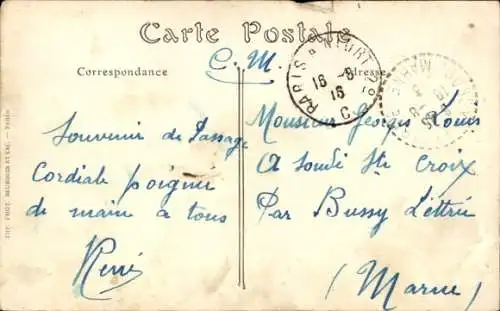 Carte Postale
C. M.
Correspondance
Adresse
PARIS A NIORT
16 -8
16
C
Souvenir de Passage
Cordiale poignée
de main à tous
René
Monsieur Georges Louis
A Soudé Ste Croix
Par Bussy Lettrée
(Marne)